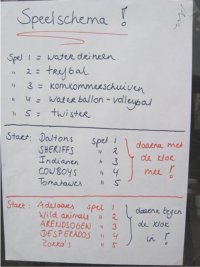 Speelschema !
Spel 1 = waterdrinken
" 2 = trefbal
" 3 = komkommerschuiven
" 4 = waterballon-volleybal
" 5 = twister
Start: Daltons spel 1
SHERIFFS " 2
Indianen " 3
COWBOYS " 4
Tomahawks " 5
daarna met
de klok
mee !
Start: Adelaars spel 1
Wild animals " 2
ARENDSOGEN " 3
DESPERADOS " 4
Zorro's " 5
daarna tegen
de klok
in !